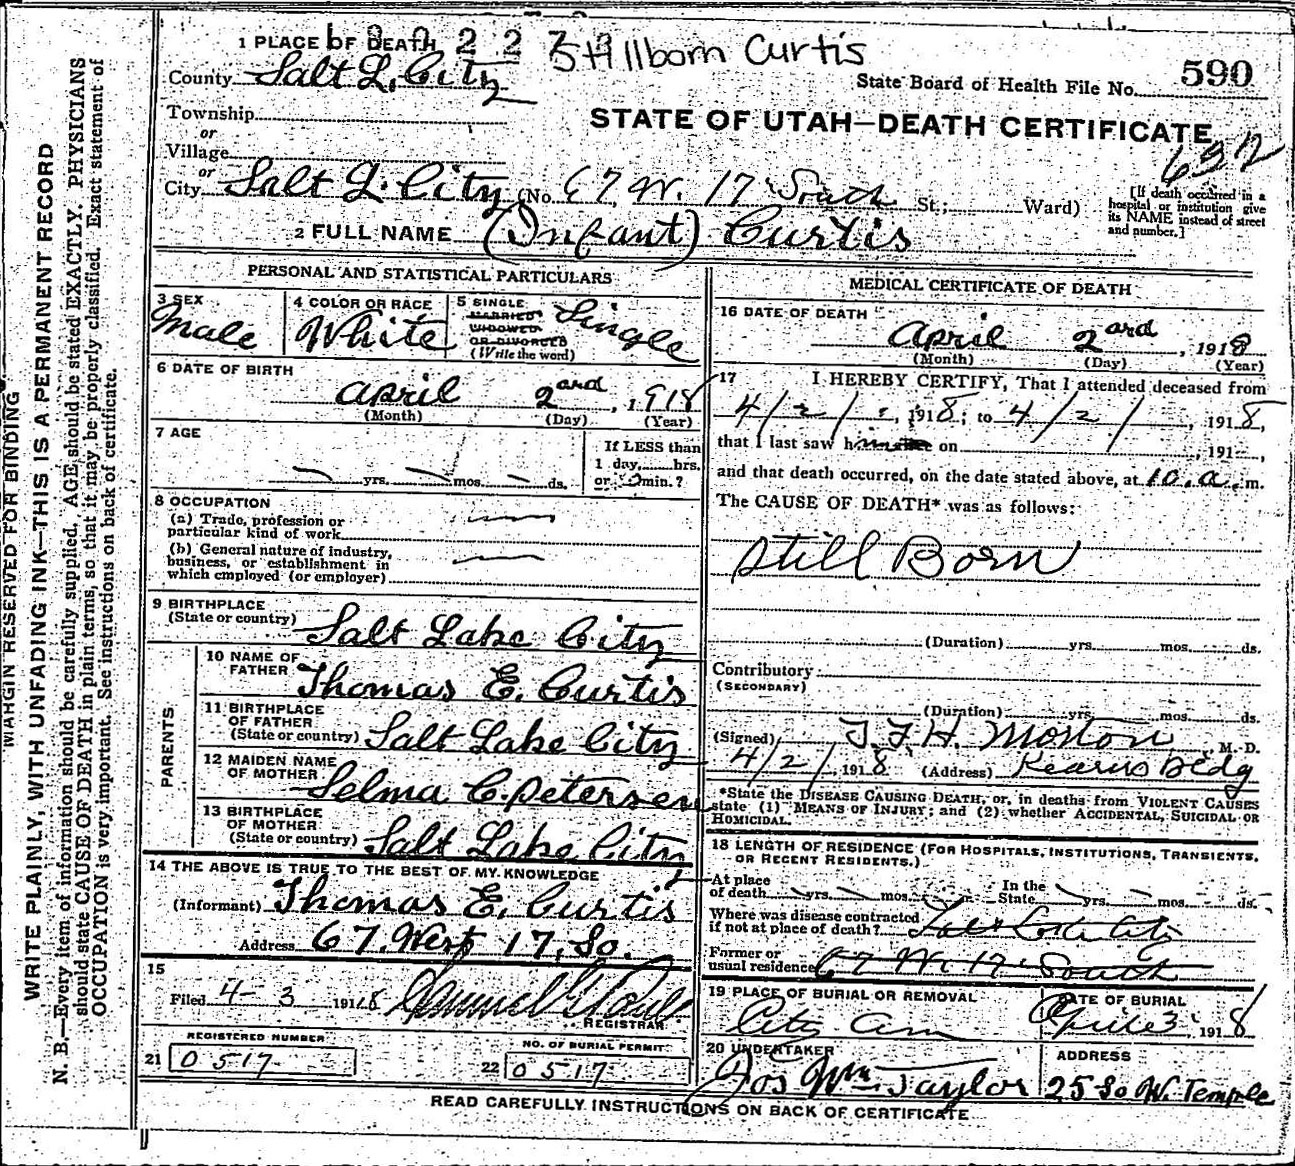 1 PLACE OF DEATH
Stillborn Curtis
County Salt L. City
State Board of Health File No. 590
Township
or
Village
or
STATE OF UTAH—DEATH CERTIFICATE
632
City Salt L. City (No. 67 W. 17 South St.; Ward)
[If death occurred in a
hospital or institution give
its NAME instead of street
and number.]
2 FULL NAME (Infant) Curtis
PERSONAL AND STATISTICAL PARTICULARS
3 SEX
Male
4 COLOR OR RACE
White
5 SINGLE
MARRIED
WIDOWED
OR DIVORCED
(Write the word)
Single
6 DATE OF BIRTH
April 2ard, 1918
(Month) (Day) (Year)
7 AGE
yrs. mos. ds.
If LESS than
1 day, hrs.
or min.?
8 OCCUPATION
(a) Trade, profession or
particular kind of work
(b) General nature of industry,
business, or establishment in
which employed (or employer)
9 BIRTHPLACE
(State or country) Salt Lake City
PARENTS
10 NAME OF
FATHER Thomas E. Curtis
11 BIRTHPLACE
OF FATHER
(State or country) Salt Lake City
12 MAIDEN NAME
OF MOTHER Selma C. Petersen
13 BIRTHPLACE
OF MOTHER
(State or country) Salt Lake City
14 THE ABOVE IS TRUE TO THE BEST OF MY KNOWLEDGE
(Informant) Thomas E. Curtis
Address 67. West 17, So.
15
Filed 4-3 1918
REGISTRAR
REGISTERED NUMBER
21 0517
NO. OF BURIAL PERMIT
22 0517
MEDICAL CERTIFICATE OF DEATH
16 DATE OF DEATH
April 2ard, 1918
(Month) (Day) (Year)
17 I HEREBY CERTIFY, That I attended deceased from
4/2/, 1918; to 4/2/, 1918,
that I last saw h on , 191 ,
and that death occurred, on the date stated above, at 10.a.m.
The CAUSE OF DEATH* was as follows:
Still Born
(Duration) yrs. mos. ds.
Contributory
(SECONDARY)
(Duration) yrs. mos. ds.
(Signed) T.F.H. Morton, M. D.
4/2/, 1918 (Address) Kearns Bldg
*State the DISEASE CAUSING DEATH, or, in deaths from VIOLENT CAUSES
state (1) MEANS OF INJURY; and (2) whether ACCIDENTAL, SUICIDAL OR
HOMICIDAL.
18 LENGTH OF RESIDENCE (FOR HOSPITALS, INSTITUTIONS, TRANSIENTS,
OR RECENT RESIDENTS.)
At place
of death yrs. mos. ds.
In the
State yrs. mos. ds.
Where was disease contracted
if not at place of death?
Former or
usual residence 67 W. 17 South
19 PLACE OF BURIAL OR REMOVAL
City Cem
DATE OF BURIAL
April 3, 1918
20 UNDERTAKER
Jos Wm. Taylor
ADDRESS
25 So W. Temple
READ CAREFULLY INSTRUCTIONS ON BACK OF CERTIFICATE
MARGIN RESERVED FOR BINDING
WRITE PLAINLY, WITH UNFADING INK—THIS IS A PERMANENT RECORD
N. B.—Every item of information should be carefully supplied. AGE should be stated EXACTLY. PHYSICIANS
should state CAUSE OF DEATH in plain terms, so that it may be properly classified. Exact statement of
OCCUPATION is very important. See instructions on back of certificate.